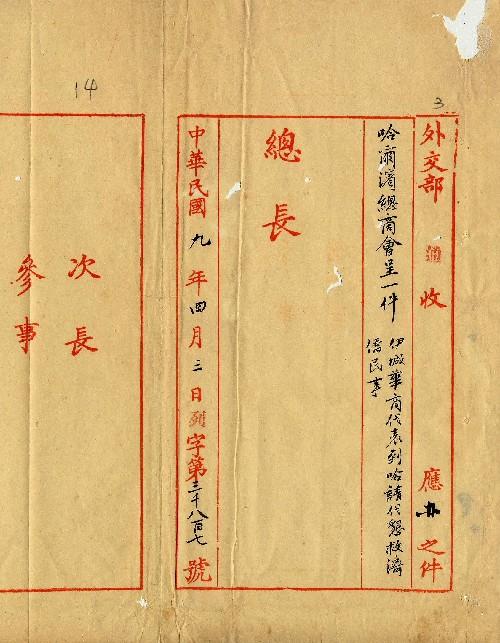 14
3
外交部 收 應辦之件
哈爾濱總商會呈一件
伊城華商代表到哈請代懇救濟
僑民事
總長
中華民國九年四月三日列字第三千八百七號
次長
參事